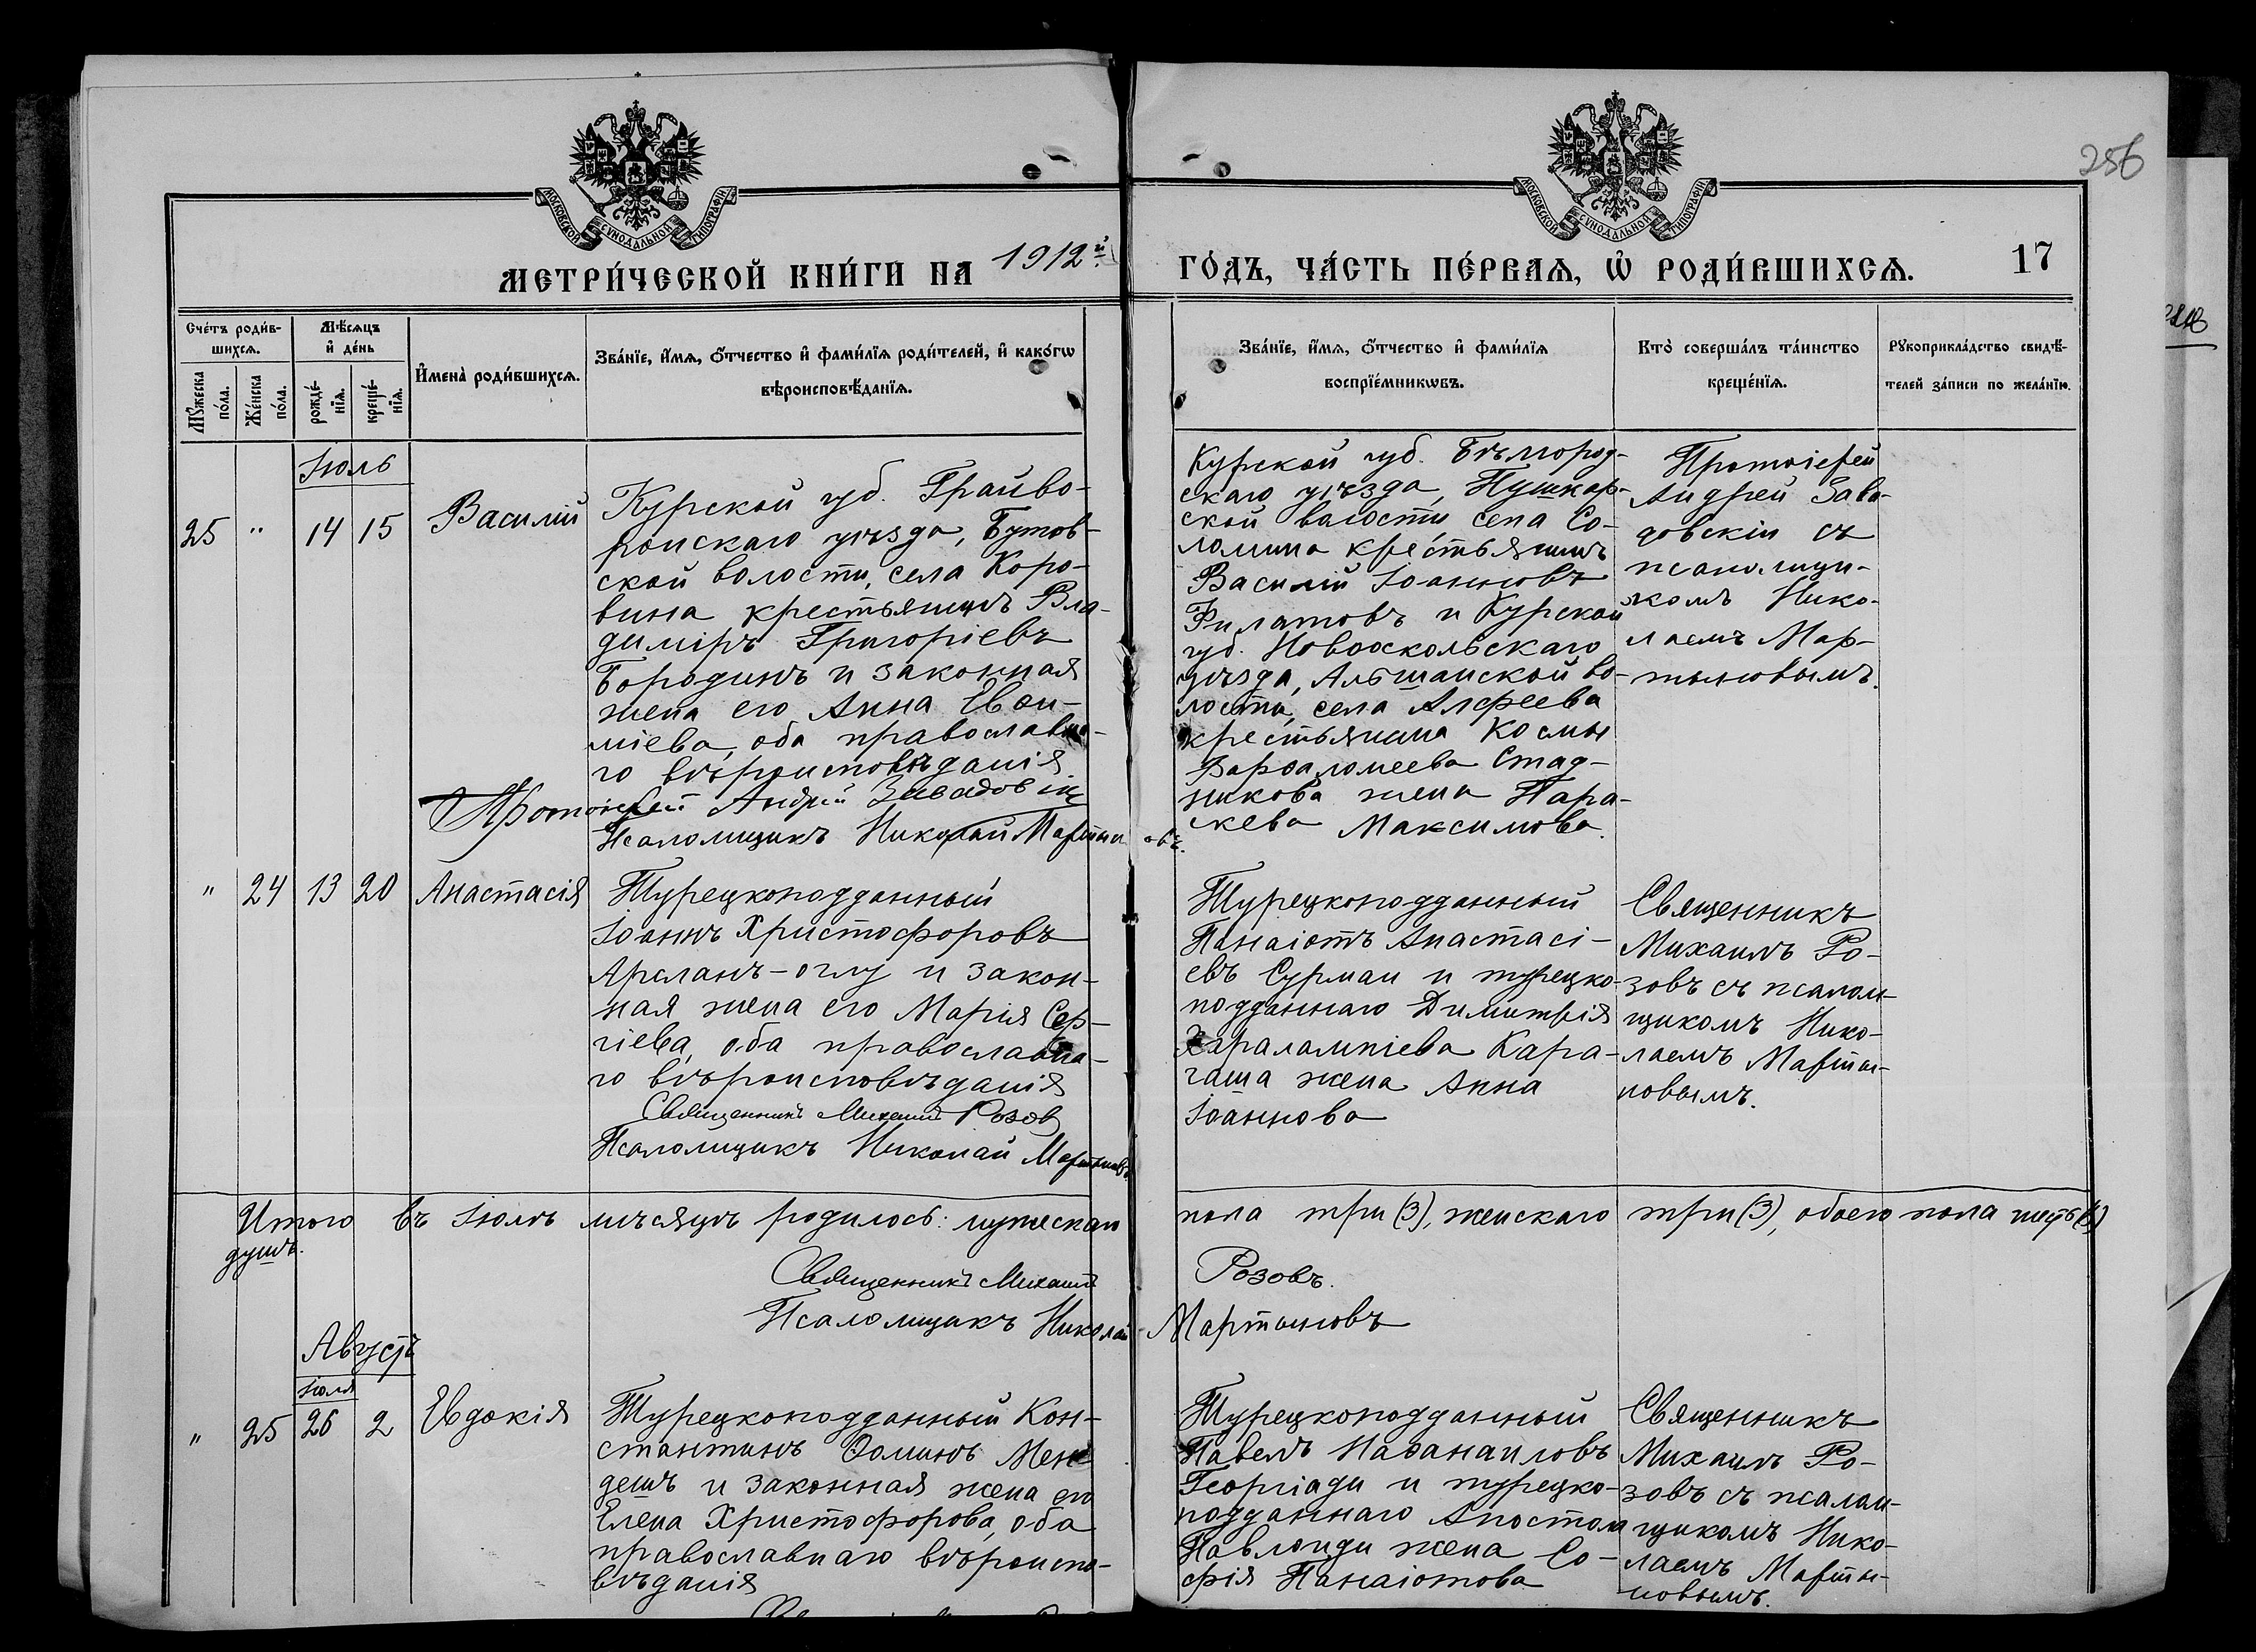 256
МОСКОВСКОЙ СУНОДАЛЬНОЙ ТИПОГРАФІИ
МОСКОВСКОЙ СУНОДАЛЬНОЙ ТИПОГРАФІИ
МЕТРИ́ЧЕСКОЙ КНИ́ГИ НА 1912й
ГО́ДЪ, ЧА́СТЬ ПЕ́РВАѦ, Ѡ РОДИ́ВШИХСѦ.
17
Сче́тъ роди́в-
шихсѧ.
Мꙋ́жеска
по́ла.
Же́нска
по́ла.
Мѣ́сѧцъ
и҆ де́нь
рожде́-
нїѧ.
креще́-
нїѧ.
И҆мена̀ роди́вшихсѧ.
Зва́нїе, и҆́мѧ, ѻ҆́тчество и҆ фами́лїѧ роди́телей, и҆ како́гѡ
вѣроисповѣ́данїѧ.
Зва́нїе, и҆́мѧ, ѻ҆́тчество и҆ фами́лїѧ
воспрїе́мникѡвъ.
Кто̀ соверша́лъ та́инство
креще́нїѧ.
Рꙋкоприкла́дство свидѣ́-
телей за́писи по жела́нїю.
Іюль
25 " 14 15 Василій
Курской губ. Грайво-
ронскаго уѣзда, Бутов-
ской волости, села Коро-
вина крестьянинъ Вла-
диміръ Григоріевъ
Бородинъ и законная
жена его Анна Евѳи-
міева, оба православна-
го вѣроисповѣданія.
Протоіерей Андрей Завадовскій
Псаломщикъ Николай Мартыновъ.
Курской губ. Бѣлгород-
скаго уѣзда, Пушкар-
ской волости села Со-
ломина крестьянинъ
Василій Іоанновъ
Филатовъ и Курской
губ. Новооскольскаго
уѣзда, Альшанской во-
лости, села Алфеева
крестьянина Космы
Варѳаломеева Стад-
никова жена Пара-
скева Максимова.
Протоіерей
Андрей Зава-
довскій съ
псаломщи-
комъ Нико-
лаемъ Мар-
тыновымъ.
" 24 13 20 Анастасія
Турецкоподданный
Іоаннъ Христофоровъ
Арсланъ-оглу и закон-
ная жена его Марія Сер-
гіева, оба православна-
го вѣроисповѣданія
Священникъ Михаилъ Розовъ
Псаломщикъ Николай Мартыновъ.
Турецкоподданный
Панаіотъ Анастасі-
евъ Сурман и турецко-
подданнаго Димитрія
Харалампіева Кара-
гаша жена Анна
Іоаннова
Священникъ
Михаилъ Ро-
зовъ съ псалом-
щикомъ Нико-
лаемъ Марты-
новымъ.
Итого въ Іюлѣ мѣсяцѣ родилось: мужескаго пола три (3), женскаго три (3), обоего пола шесть (6)
душъ.
Священникъ Михаилъ Розовъ.
Псаломщикъ Николай Мартыновъ
Августъ
Іюля
" 25 26 2 Евдокія
Турецкоподданный Кон-
стантинъ Ѳоминъ Мен-
дешъ и законная жена его
Елена Христофорова, оба
православнаго вѣроиспо-
вѣданія
Турецкоподданный
Павелъ Наѳанаиловъ
Георгіади и турецко-
подданнаго Апостола
Павлоиди жена Со-
фія Панаіотова
Священникъ
Михаилъ Ро-
зовъ съ псалом-
щикомъ Нико-
лаемъ Марты-
новымъ.